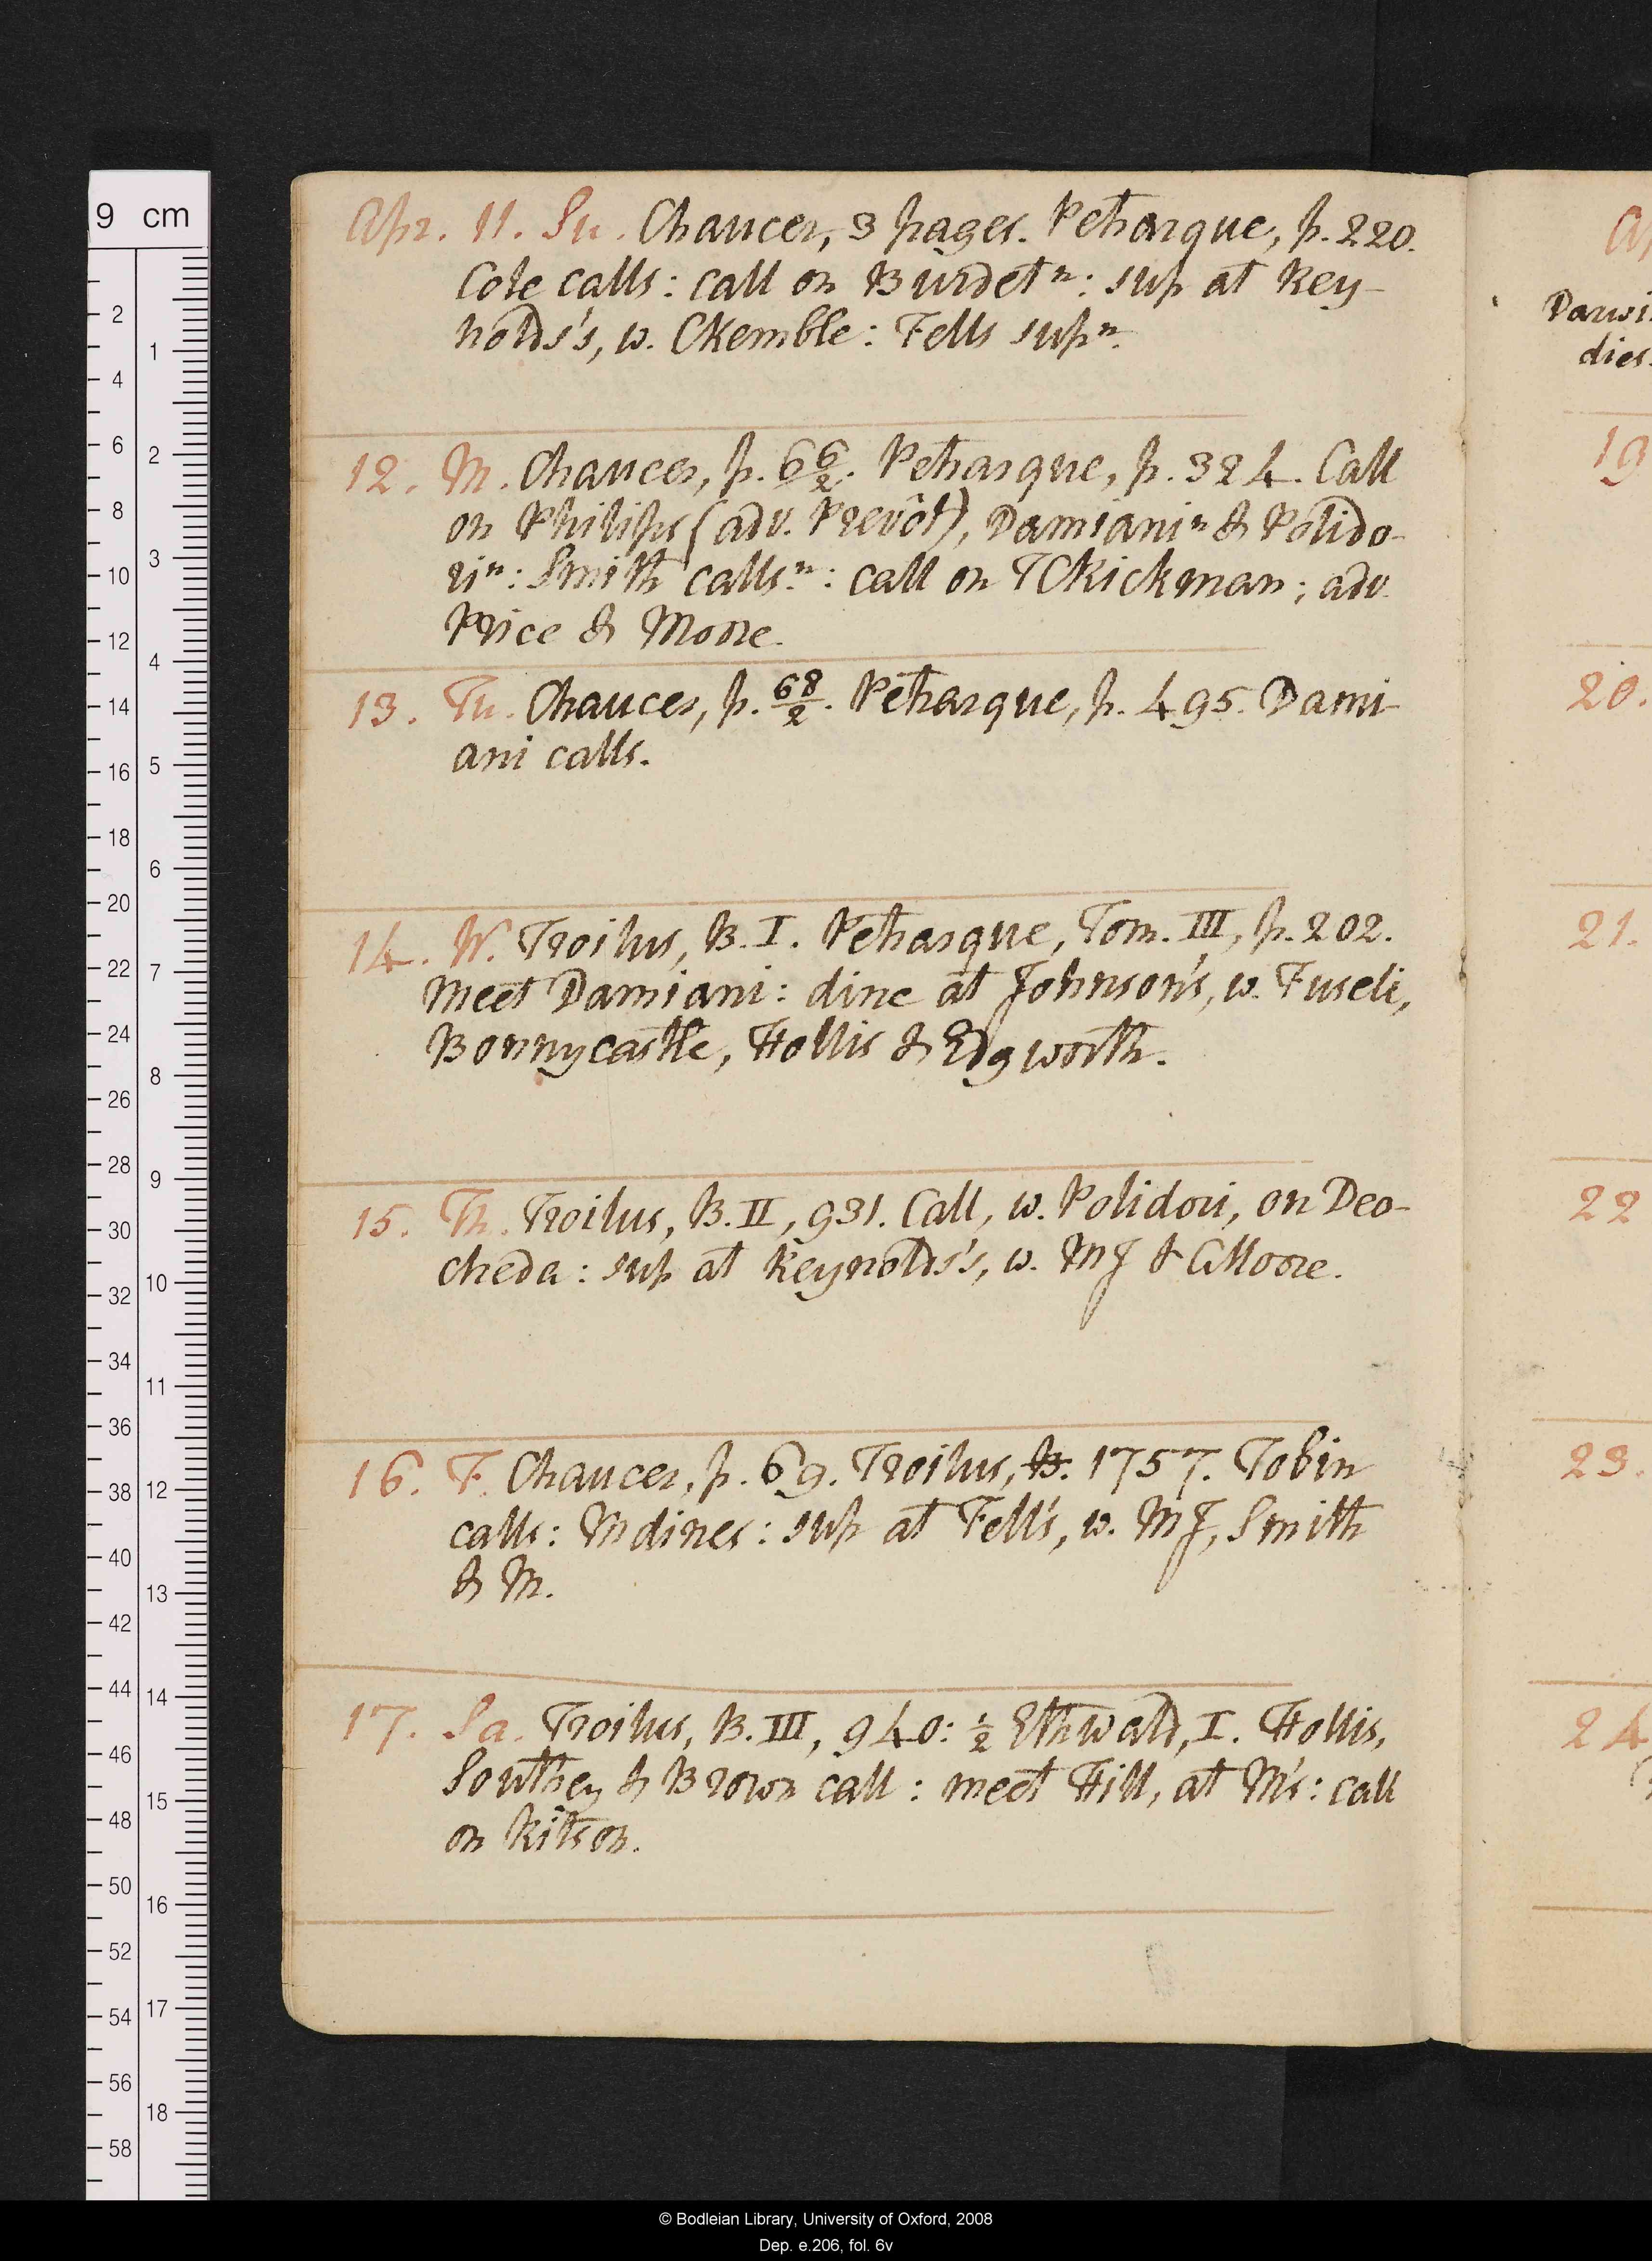 Apr. 11. Su. Chaucer, 3 pages. Petrarque, p. 220.
Cole calls: call on Burdet n: sup at Rey-
nolds's, w. CKemble: Fells sup n.
12. M. Chaucer, p. 66/2. Petrarque, p. 324. Call
on Philips (adv. Prevôt), Damiani n & Polido-
ri n: Smith calls n: call on TCRickman; adv.
Price & Moore.
13. Tu. Chaucer, p. 68/2. Petrarque, p. 495. Dami-
ani calls.
14. W. Troilus, B. I. Petrarque, Tom. III, p. 202.
Meet Damiani: dine at Johnson's, w. Fuseli,
Bonnycastle, Hollis & Edgworth.
15. Th. Troilus, B. II, 931. Call, w. Polidori, on Deo-
cheda: sup at Reynolds's, w. MJ & CMoore.
16. F. Chaucer, p. 69. Troilus, B. 1757. Tobin
calls: M dines: sup at Fell's, w. MJ, Smith
& M.
17. Sa. Troilus, B. III, 940: ½ Ethwald, I. Hollis,
Southey & Brown call: meet Hill, at M's: call
on Ritson.
Darwi
dies.
19
20.
21.
22
23.
24
9 cm
© Bodleian Library, University of Oxford, 2008
Dep. e.206, fol. 6v